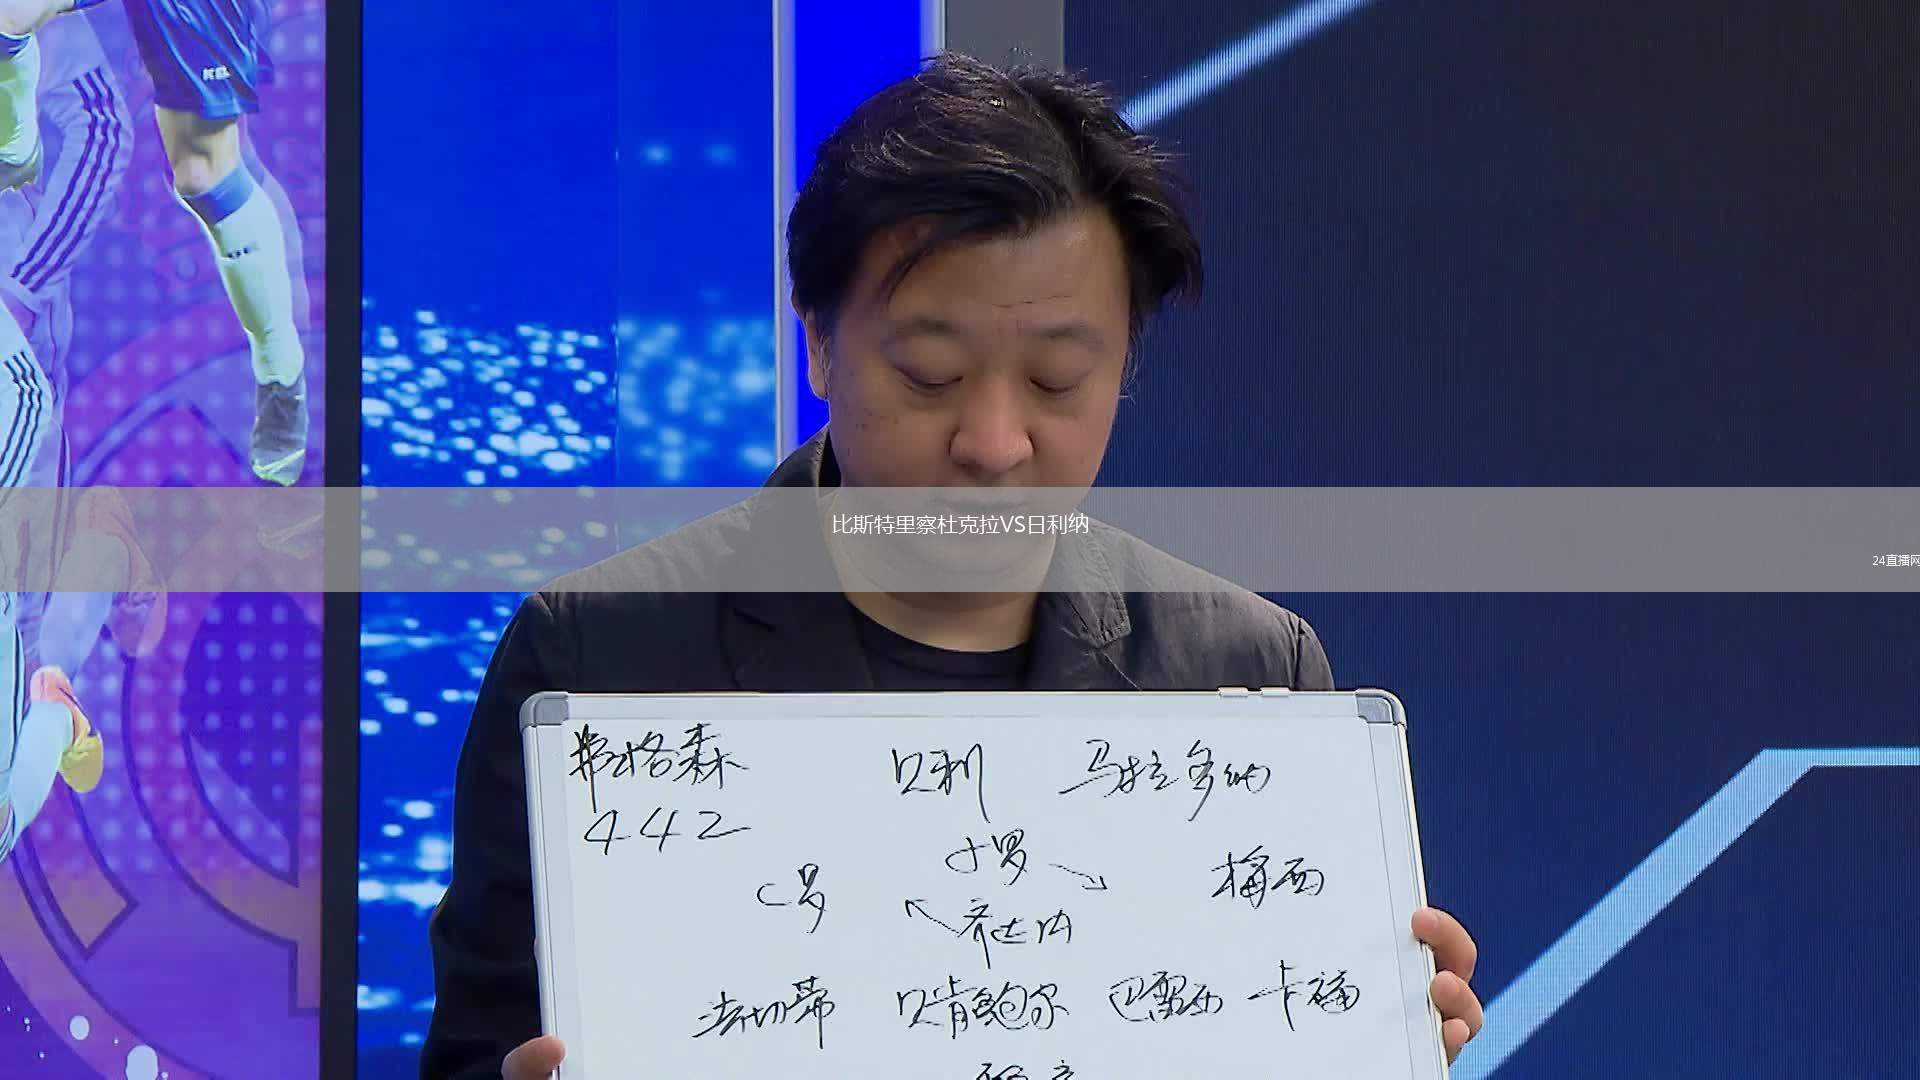 比斯特里察杜克拉VS日利纳
24直播网
弗格森 贝利 马拉多纳
442
小罗
C罗 梅西
齐达内
法切蒂 贝肯鲍尔 巴雷西 卡福